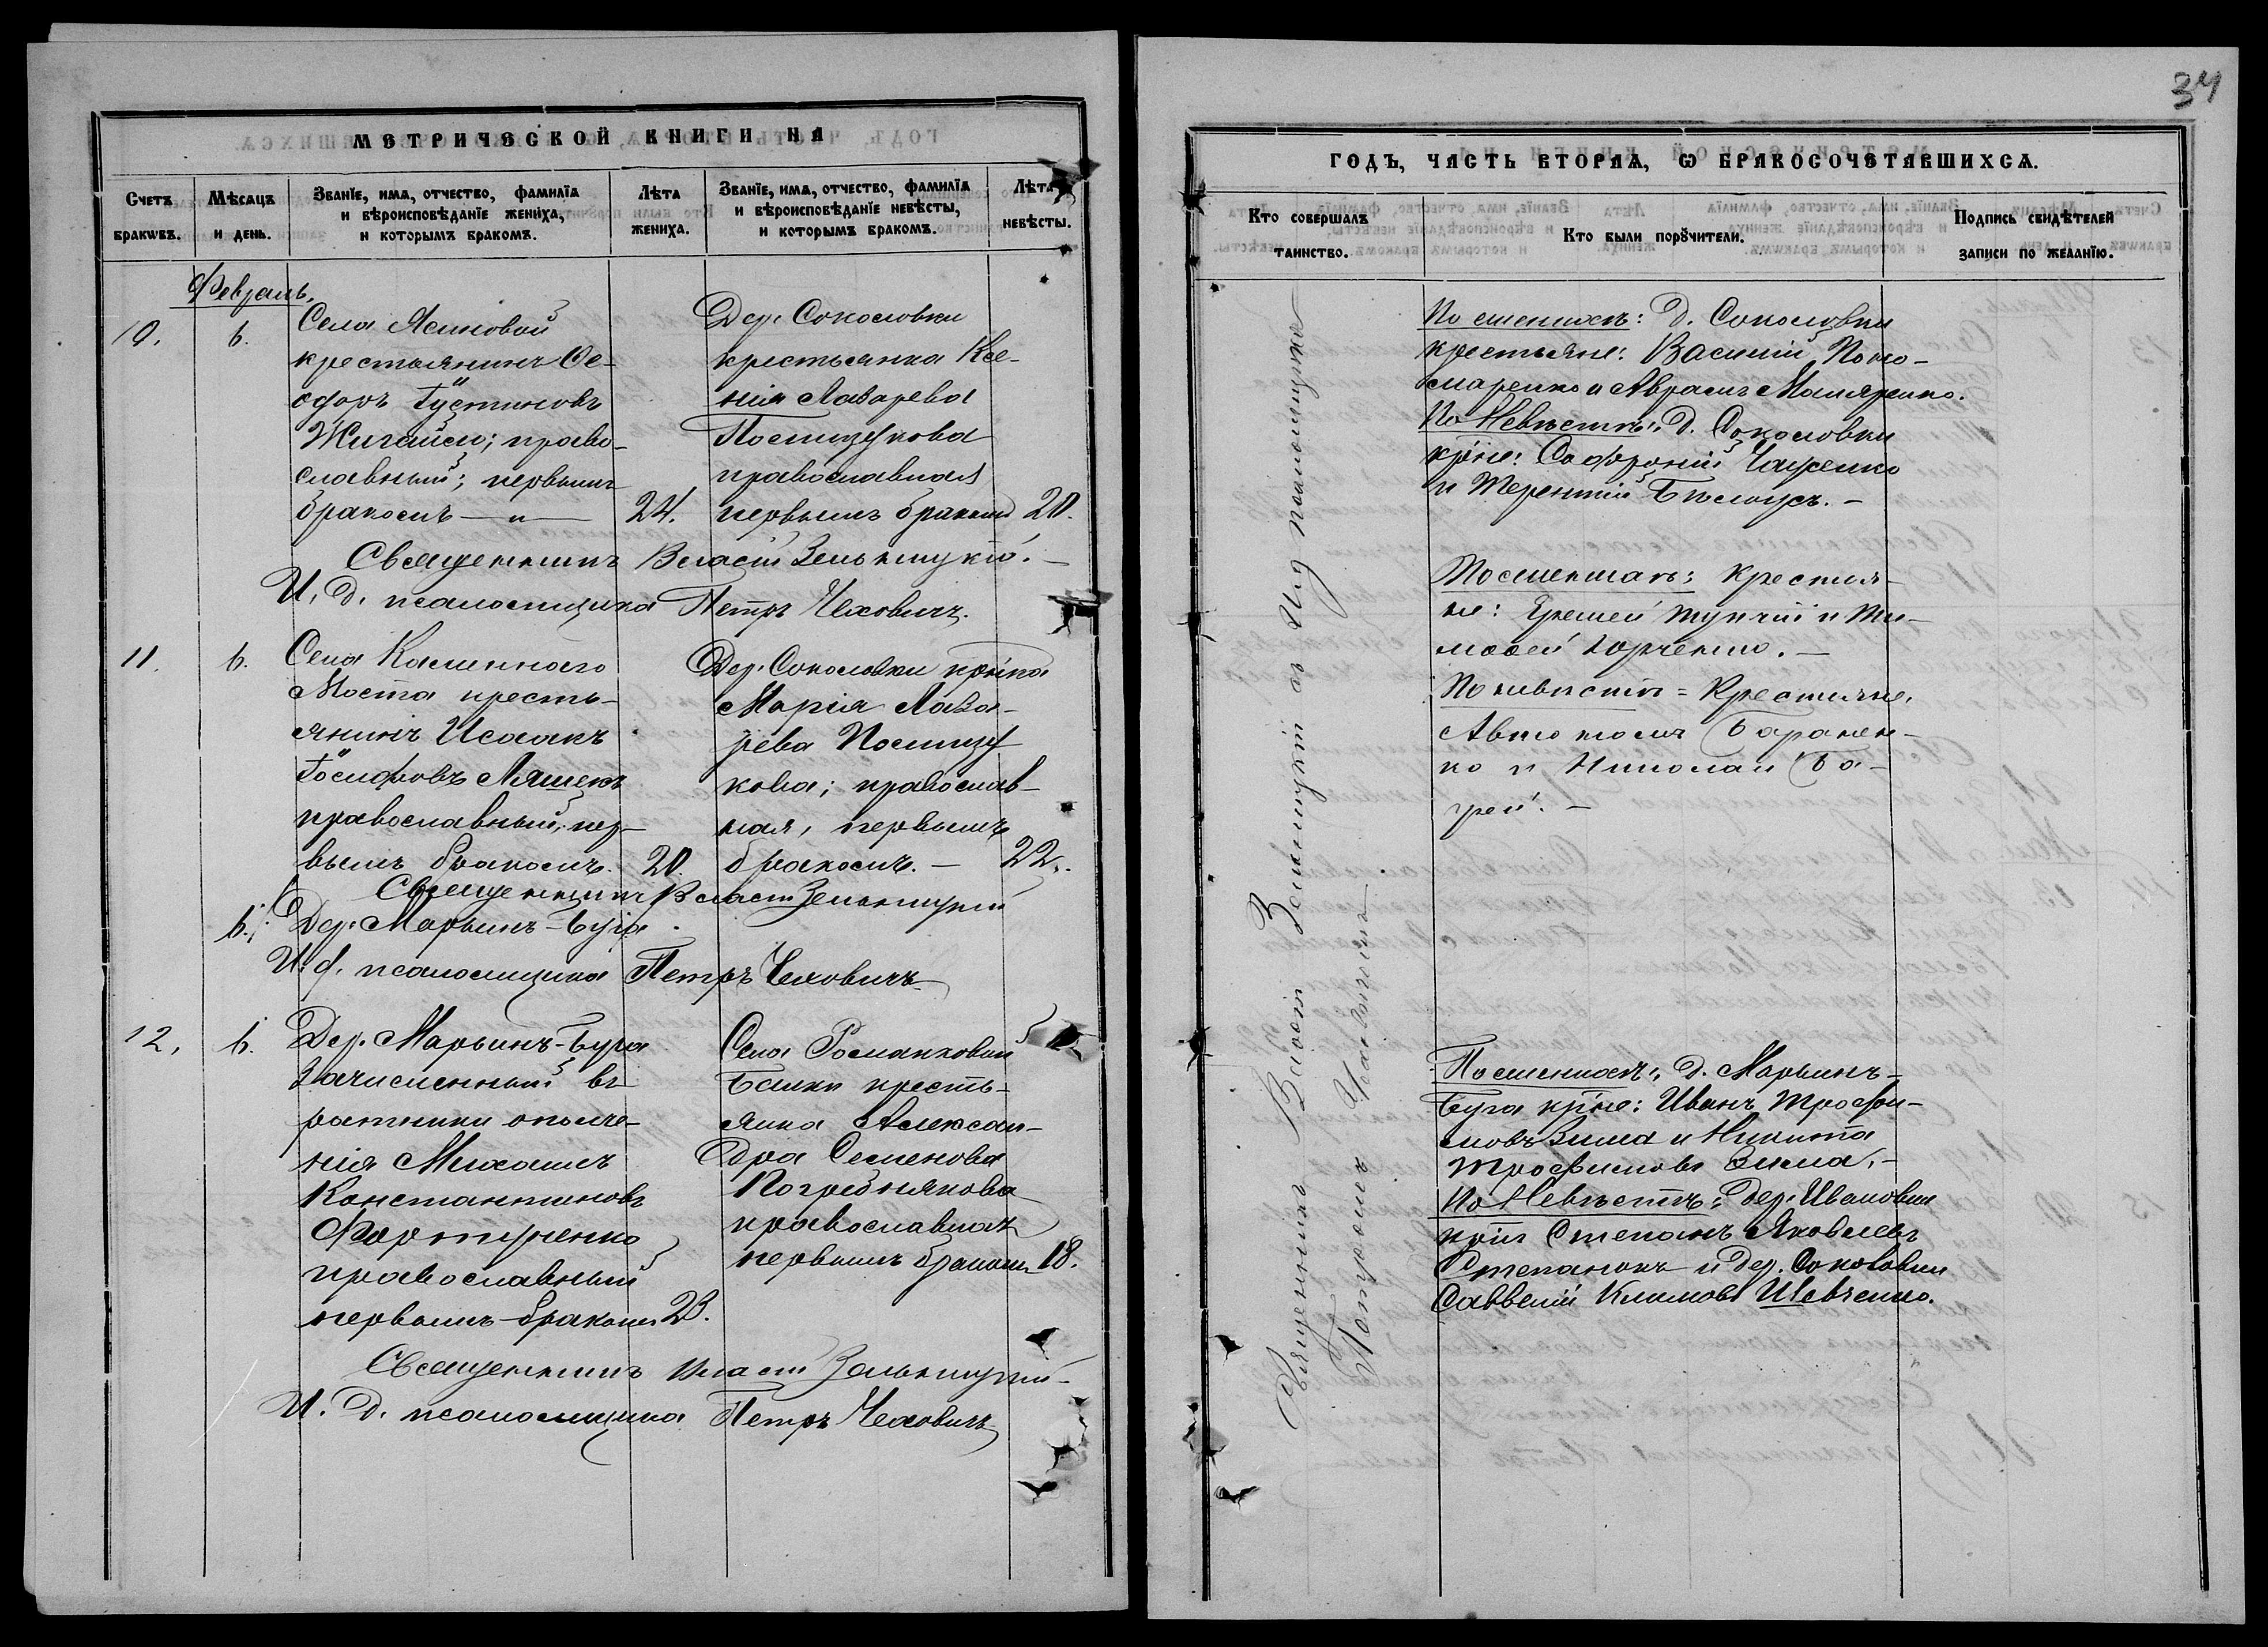 МЕТРИЧЕСКОЙ КНИГИ НА
Счетъ браковъ.
Мѣсяцъ и день.
Званїе, имя, отчество, фамилїя
и вѣроисповѣданїе жениха,
и которымъ бракомъ.
Лѣта
жениха.
Званїе, имя, отчество, фамилїя
и вѣроисповѣданїе невѣсты,
и которымъ бракомъ.
Лѣта
невѣсты.
Февраль.
10.
6.
Села Ясиновой
крестьянинъ Ѳе-
одоръ Іустиновъ
Жигайси; право-
славный; первымъ
бракомъ — „ —
24.
Дер. Соколовки
крестьянка Ксе-
нія Лазарева
православная
первымъ бракомъ
20.
Священникъ Власій Зелькицкій. —
И. д. псаломщика Петръ Чеховичъ.
11.
6.
Села Каменнаго
Моста кресть-
янинъ Исаакъ
Іосифовъ Ляшекъ
православный; пер-
вымъ бракомъ.
20.
Дер. Соколовки крїнка
Марія Лаза-
рева
кова; православ-
ная, первымъ
бракомъ. —
22.
Священникъ Власій Зелькицкій
6.
Дер. Марьинъ-Буга
И. д. псаломщика Петръ Чеховичъ
12.
6.
Дер. Марьинъ-Буга
Зачисленный въ
ратники ополче-
нія Михаилъ
Константиновъ
православный
первымъ бракомъ
23.
Села Романковой
Балки кресть-
янка Алексан-
дра Семенова
Погребнякова
православная
первымъ бракомъ
18.
Священникъ Власій Зелькицкій
И. д. псаломщика Петръ Чеховичъ
34
ГОДЪ, ЧАСТЬ ВТОРАЯ, Ѡ БРАКОСОЧЕТАВШИХСЯ.
Кто совершалъ
таинство.
Кто были порꙋчители.
Подпись свидѣтелей
записи по желанїю.
Священникъ Власій Зелькицкій съ Ид псаломщика
Петромъ Чеховичемъ
По женихѣ: Д. Соколовки
крестьяне: Василій Поно-
маренко и Аврамъ Маляренко.
По Невѣстѣ: Д. Соколовки
крїне: Софроній
и Терентій Бѣлоусъ. —
По женихѣ: Крестья-
не: Еремей Тупчій и Ти-
моѳей Горченко. —
По невѣстѣ = Крестьяне,
Автономъ Баранен-
ко и Николай Ба-
грій. —
По женихѣ: Д. Марьинъ-
Буга крїне: Иванъ Трофи-
мовъ Зима и Никита
Трофимовъ Зима. —
По Невѣстѣ: Дер. Ивановки
крїн Степанъ Яковлевъ
Степанокъ и дер. Соколовки
Савелій Климовъ Шевченко.